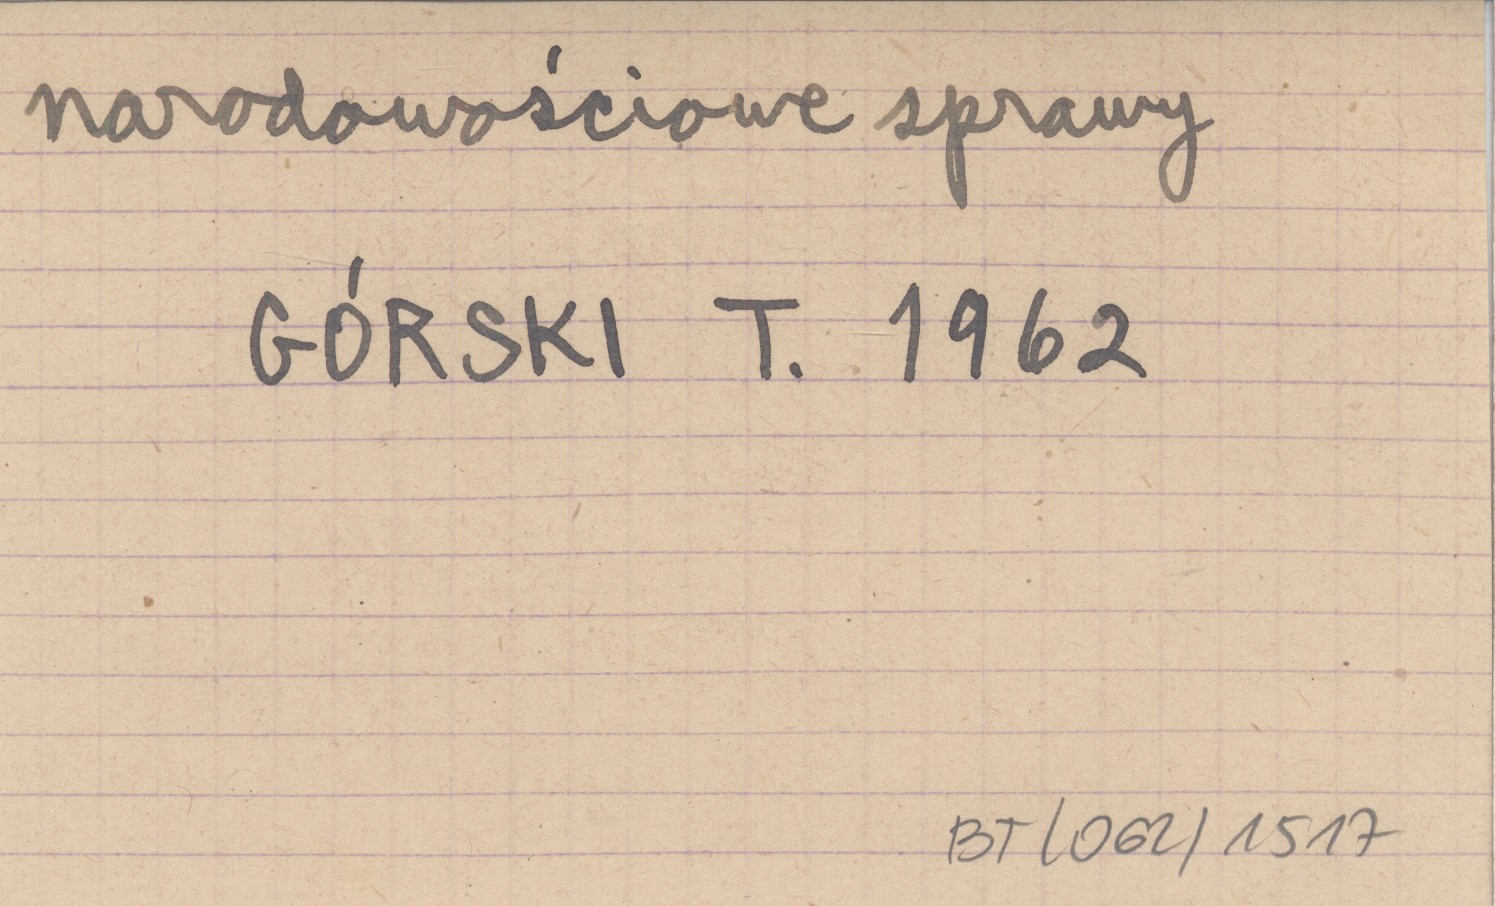 narodowościowe sprawy
GÓRSKI T. 1962
BT (062) 1517